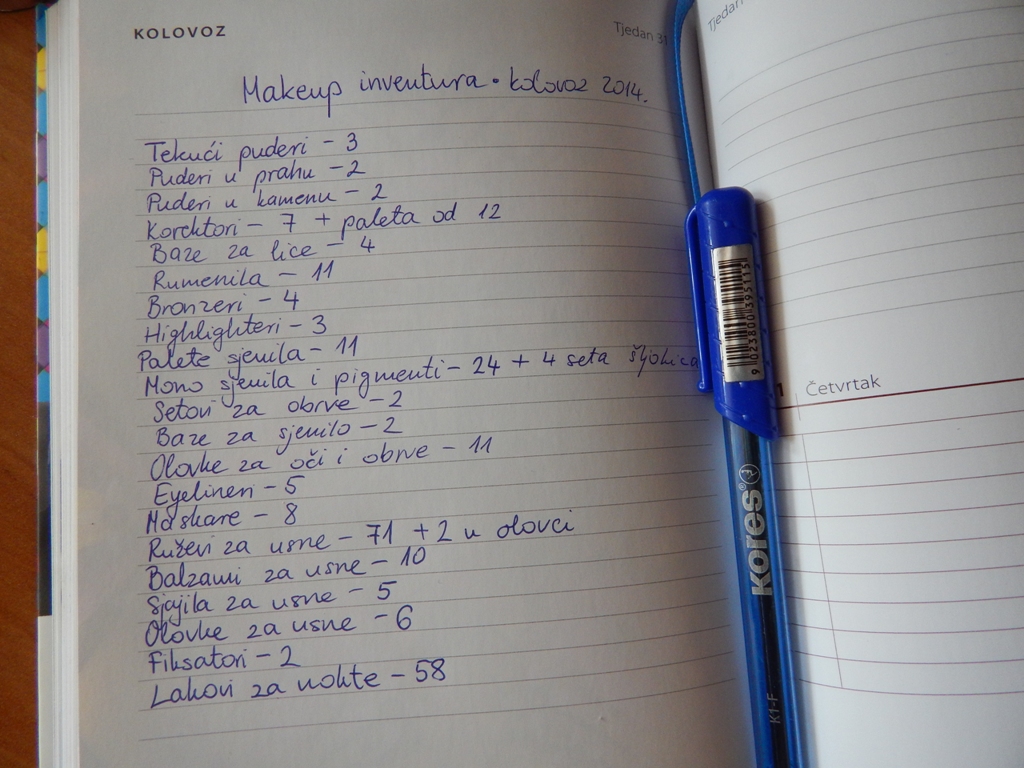 KOLOVOZ
Tjedan 31
Makeup inventura • kolovoz 2014.
Tekući puderi - 3
Puderi u prahu - 2
Puderi u kamenu - 2
Korektori - 7 + paleta od 12
Baze za lice - 4
Rumenila - 11
Bronzeri - 4
Highlighteri - 3
Palete sjenila - 11
Mono sjenila i pigmenti - 24 + 4 seta šljokica
Setovi za obrve - 2
Baze za sjenilo - 2
Olovke za oči i obrve - 11
Eyelineri - 5
Maskare - 8
Ruževi za usne - 71 + 2 u olovci
Balzami za usne - 10
Sjajila za usne - 5
Olovke za usne - 6
Fiksatori - 2
Lakovi za nokte - 58
Tjedan
1 Četvrtak
9023800395115
Kores®
K1-F